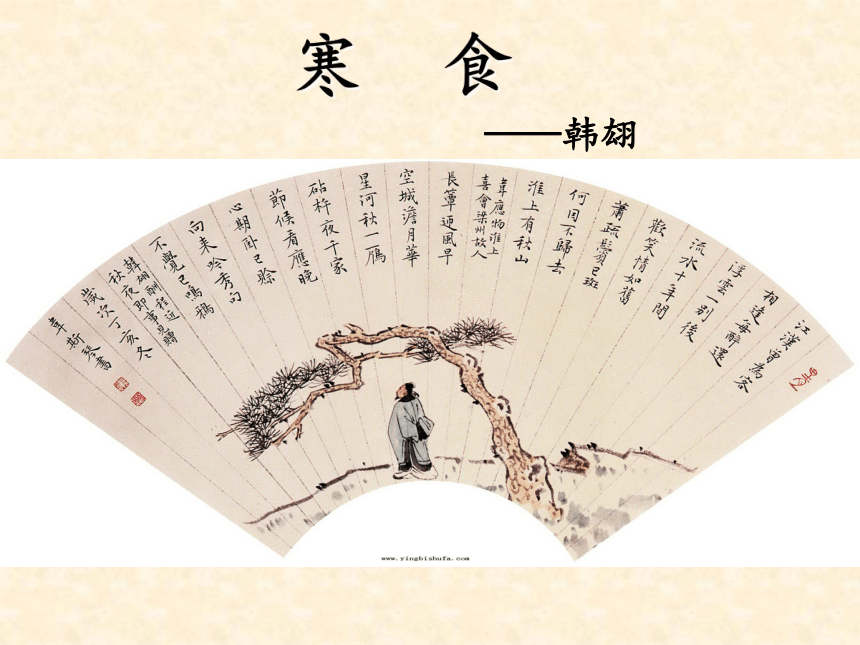 寒 食
——韩翃
江漢曾為客
相逢每醉還
浮雲一别後
流水十年間
歡笑情如舊
蕭疏鬢已斑
何因不歸去
淮上有秋山
韋應物淮上
喜會梁州故人
長簟迎風早
空城澹月華
星河秋一雁
砧杵夜千家
節候看應晚
心期卧已賒
向来吟秀句
不覺已鳴鴉
韓翃酬程近
秋夜即事見贈
歲次丁亥冬
韋斯琴書
www.yingbishufa.com